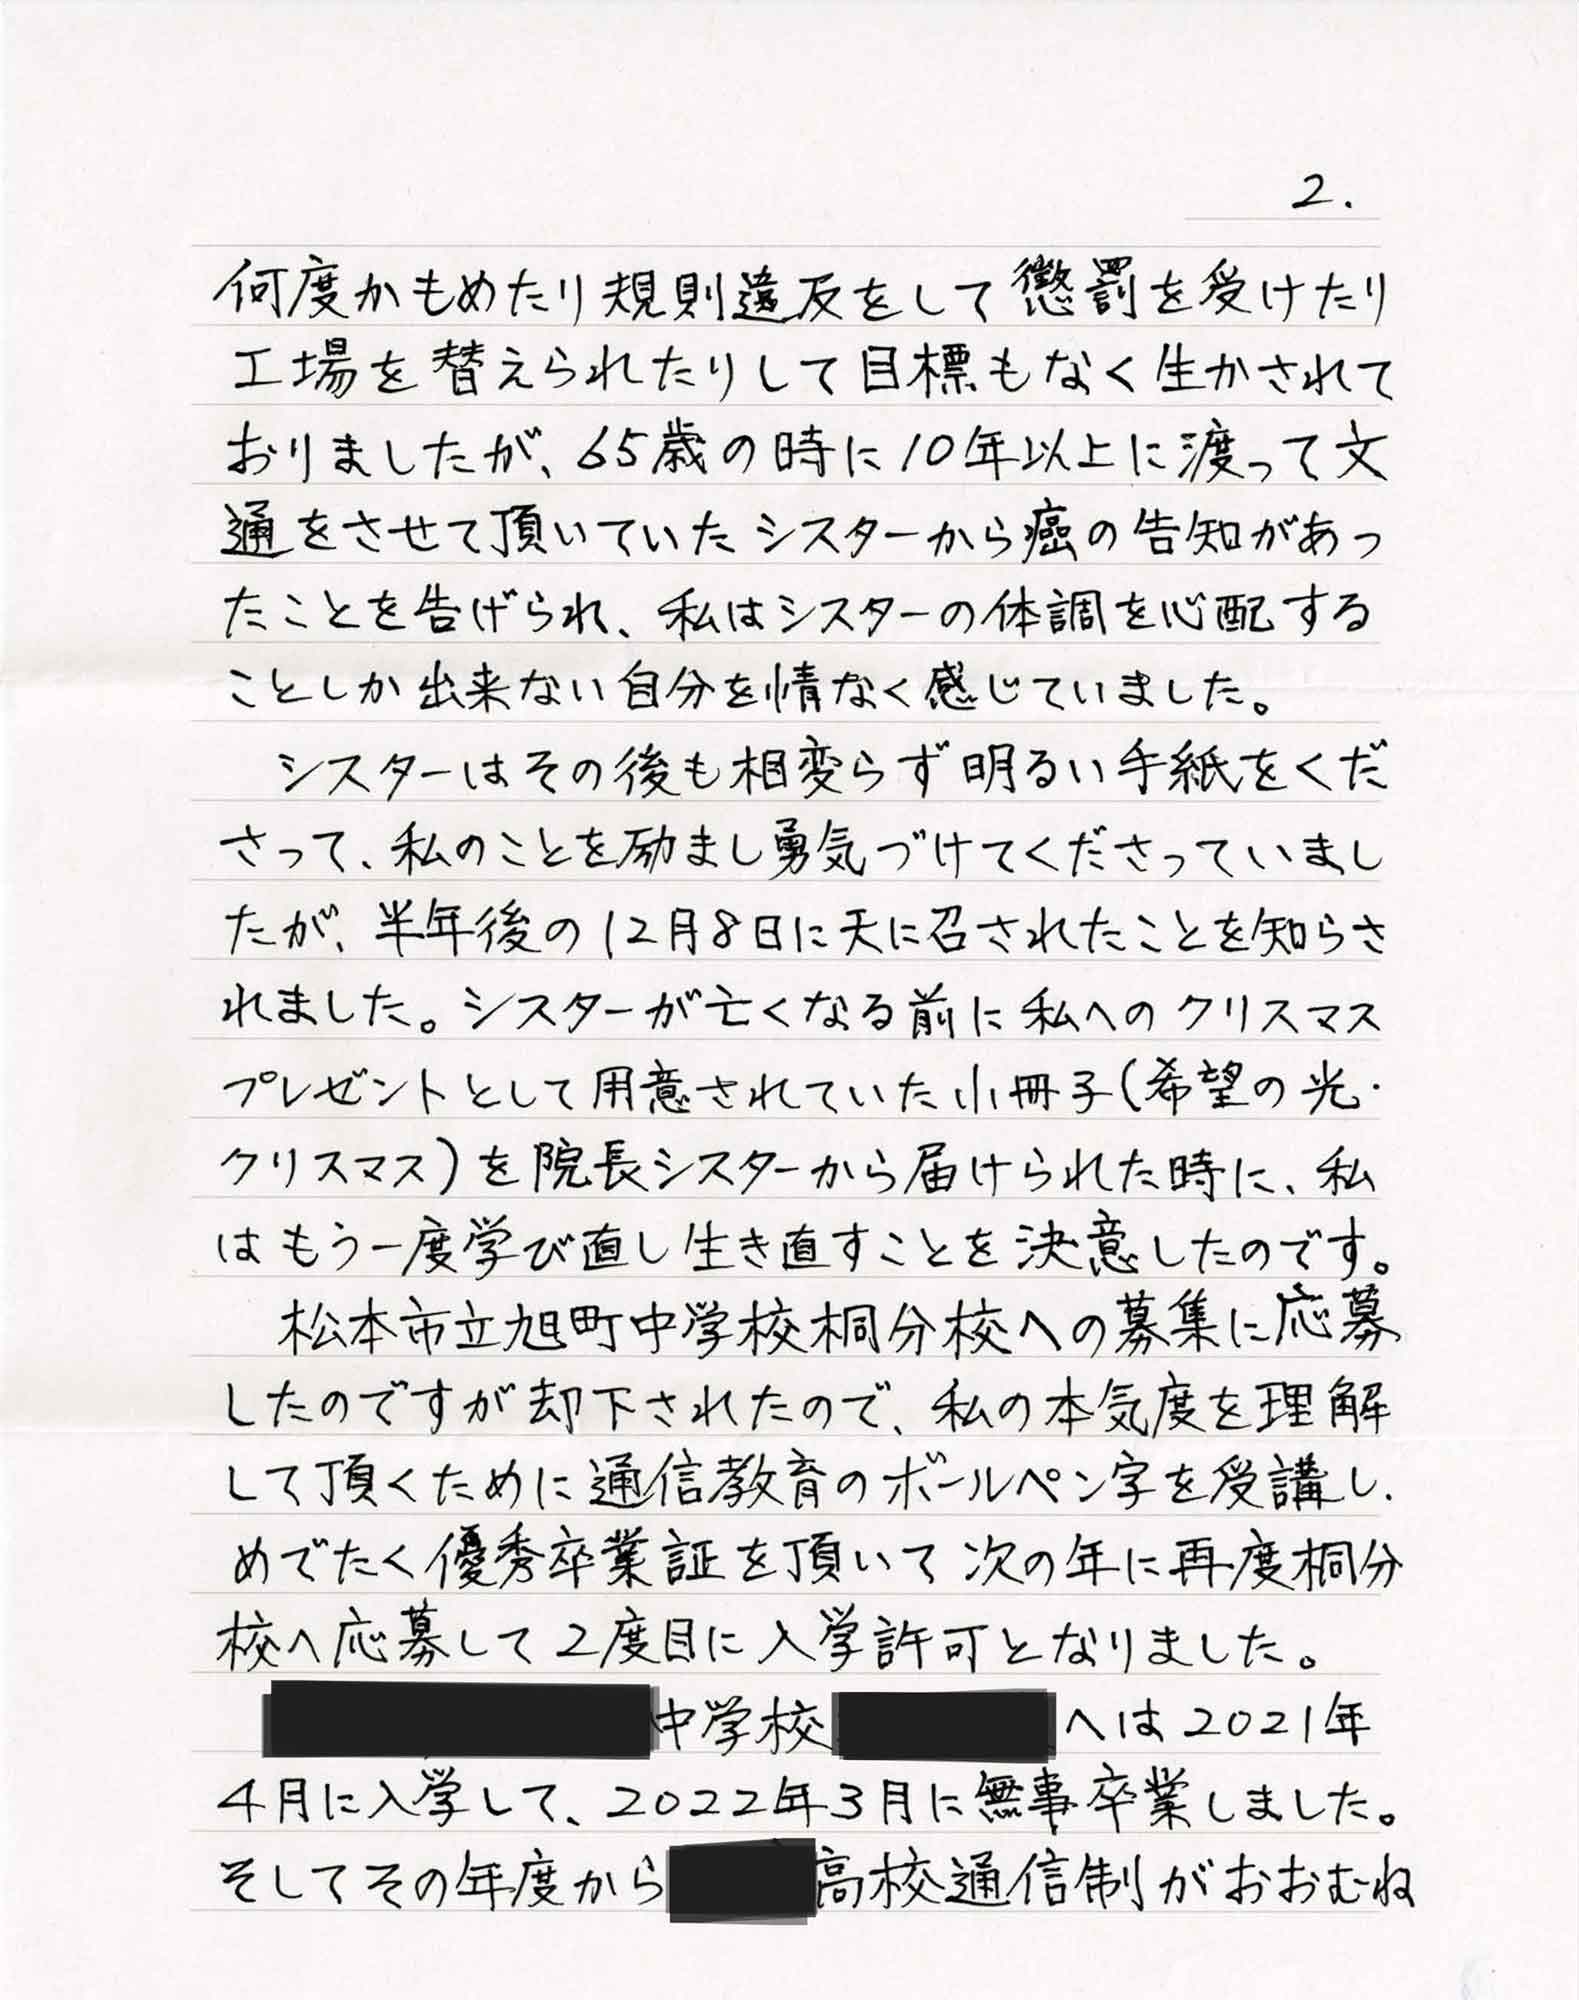 2.
何度かもめたり規則違反をして懲罰を受けたり
工場を替えられたりして目標もなく生かされて
おりましたが、65歳の時に10年以上に渡って文
通をさせて頂いていたシスターから癌の告知があっ
たことを告げられ、私はシスターの体調を心配する
ことしか出来ない自分を情なく感じていました。
シスターはその後も相変らず明るい手紙をくだ
さって、私のことを励まし勇気づけてくださっていまし
たが、半年後の12月8日に天に召されたことを知らさ
れました。シスターが亡くなる前に私へのクリスマス
プレゼントとして用意されていた小冊子(希望の光・
クリスマス)を院長シスターから届けられた時に、私
はもう一度学び直し生き直すことを決意したのです。
松本市立旭町中学校桐分校への募集に応募
したのですが却下されたので、私の本気度を理解
して頂くために通信教育のボールペン字を受講し、
めでたく優秀卒業証を頂いて次の年に再度桐分
校へ応募して2度目に入学許可となりました。
中学校 へは2021年
4月に入学して、2022年3月に無事卒業しました。
そしてその年度から 高校通信制がおおむね